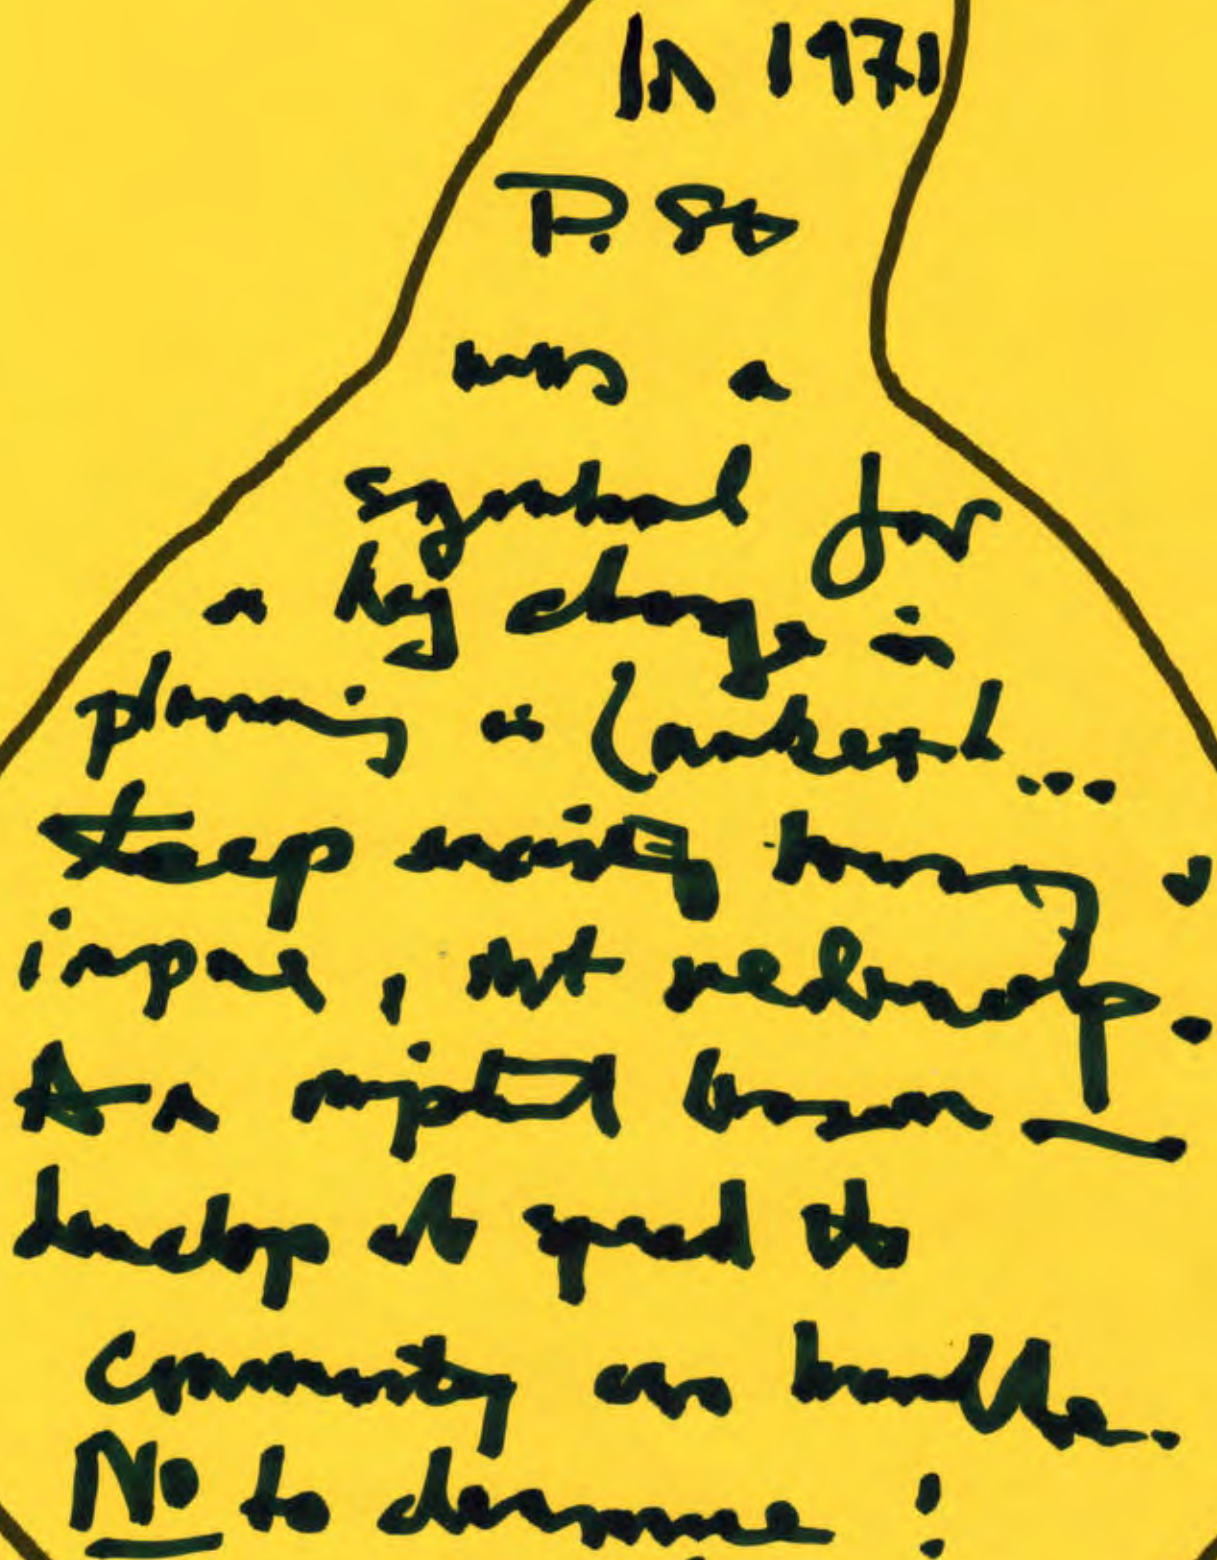 In 1971
P. St
was a
symbol for
a key change in
planning in Lambeth...
Keep existing housing &
improve, not redevelop.
As a
develop at speed the
community can handle.
No to clearance!